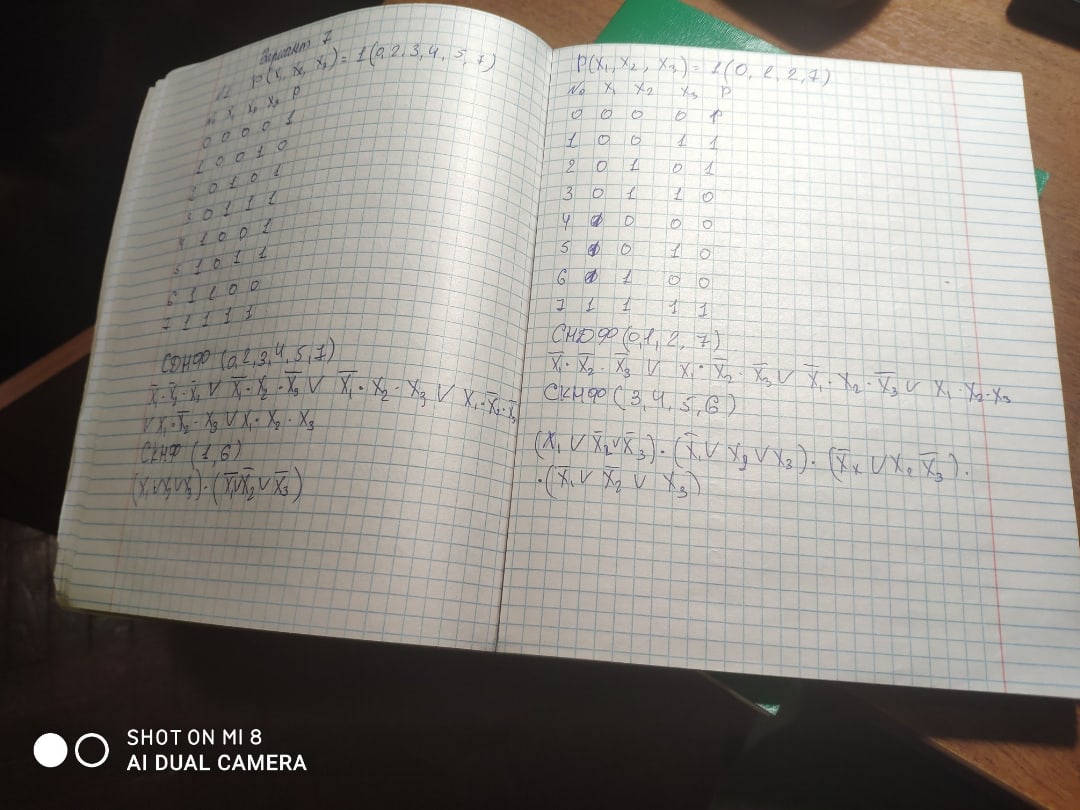 Вариант 7
P(x₁, x₂, x₃) = 1(0, 2, 3, 4, 5, 7)
№ x₁ x₂ x₃ P
0 0 0 0 1
1 0 0 1 0
2 0 1 0 1
3 0 1 1 1
4 1 0 0 1
5 1 0 1 1
6 1 1 0 0
7 1 1 1 1
СДНФ (0, 2, 3, 4, 5, 7)
x̅₁·x̅₂·x̅₃ ∨ x̅₁·x₂·x̅₃ ∨ x̅₁·x₂·x₃ ∨ x₁·x̅₂·x̅₃
∨ x₁·x̅₂·x₃ ∨ x₁·x₂·x₃
СКНФ (1, 6)
(x₁∨x₂∨x̅₃)·(x̅₁∨x̅₂∨x̅₃)
P(x₁, x₂, x₃) = 1(0, 1, 2, 7)
№ x₁ x₂ x₃ P
0 0 0 0 1
1 0 0 1 1
2 0 1 0 1
3 0 1 1 0
4 1 0 0 0
5 1 0 1 0
6 1 1 0 0
7 1 1 1 1
СНДФ (0, 1, 2, 7)
x̅₁·x̅₂·x̅₃ ∨ x₁·x̅₂·x̅₃ ∨ x̅₁·x₂·x̅₃ ∨ x₁·x₂·x₃
СКНФ (3, 4, 5, 6)
(x₁∨x̅₂∨x̅₃)·(x̅₁∨x₂∨x₃)·(x̅ₓ∨x₂ x̅₃)·
·(x̅₁∨x̅₂∨x₃)
SHOT ON MI 8
AI DUAL CAMERA